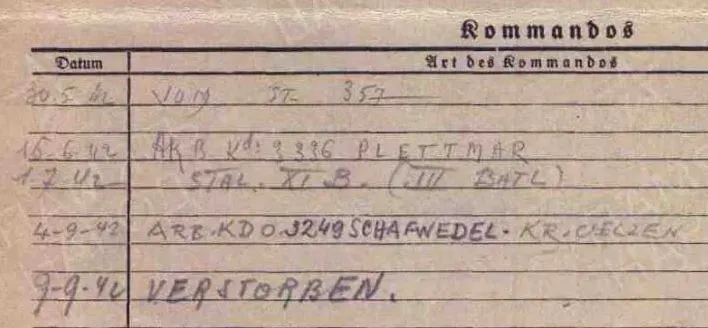 Kommandos
Datum Art des Kommandos
30.5.42 VON ST. 357
15.6.42 ARB Kd: 9396 PLETTMAR
1.7.42 STAL. XI B. (III BATL)
4-9-42 ARB.KDO.3249 SCHAFWEDEL. KR. UELZEN
9-9-42 VERSTORBEN.